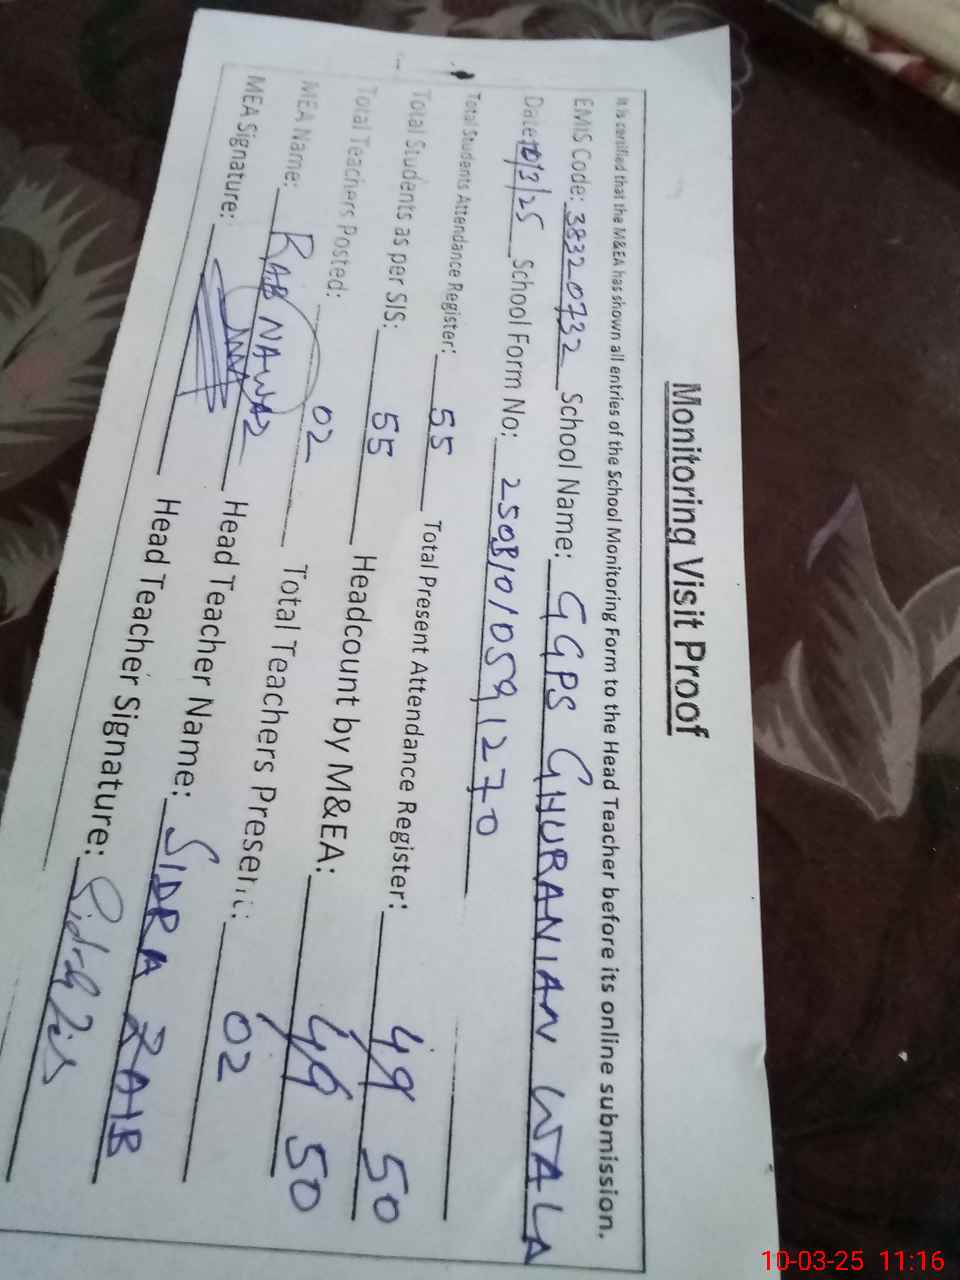 Monitoring Visit Proof
It is certified that the M&EA has shown all entries of the School Monitoring Form to the Head Teacher before its online submission.
EMIS Code: 38320732 School Name: GGPS GHURANIAN WALA
Date: 10/3/25 School Form No: 25081010591270
Total Students Attendance Register: 55 Total Present Attendance Register: 49 50
Total Students as per SIS: 55 Headcount by M&EA: 49 50
Total Teachers Posted: 02 Total Teachers Present: 02
MEA Name: RAB NAWAZ Head Teacher Name: SIDRA
MEA Signature: Head Teacher Signature:
10-03-25 11:16